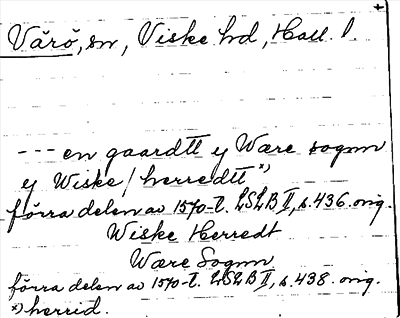 Värö, sn, Viske hd, Hall. l.
--- en gaardtt y Wære sognn
y Wiske / herredtt *)
förra delen av 1570-t. LSLB II, s. 436. orig.
Wiske Herredt
Wære Sognn
förra delen av 1570-t. LSLB II, s. 438. orig.
*) herrid.